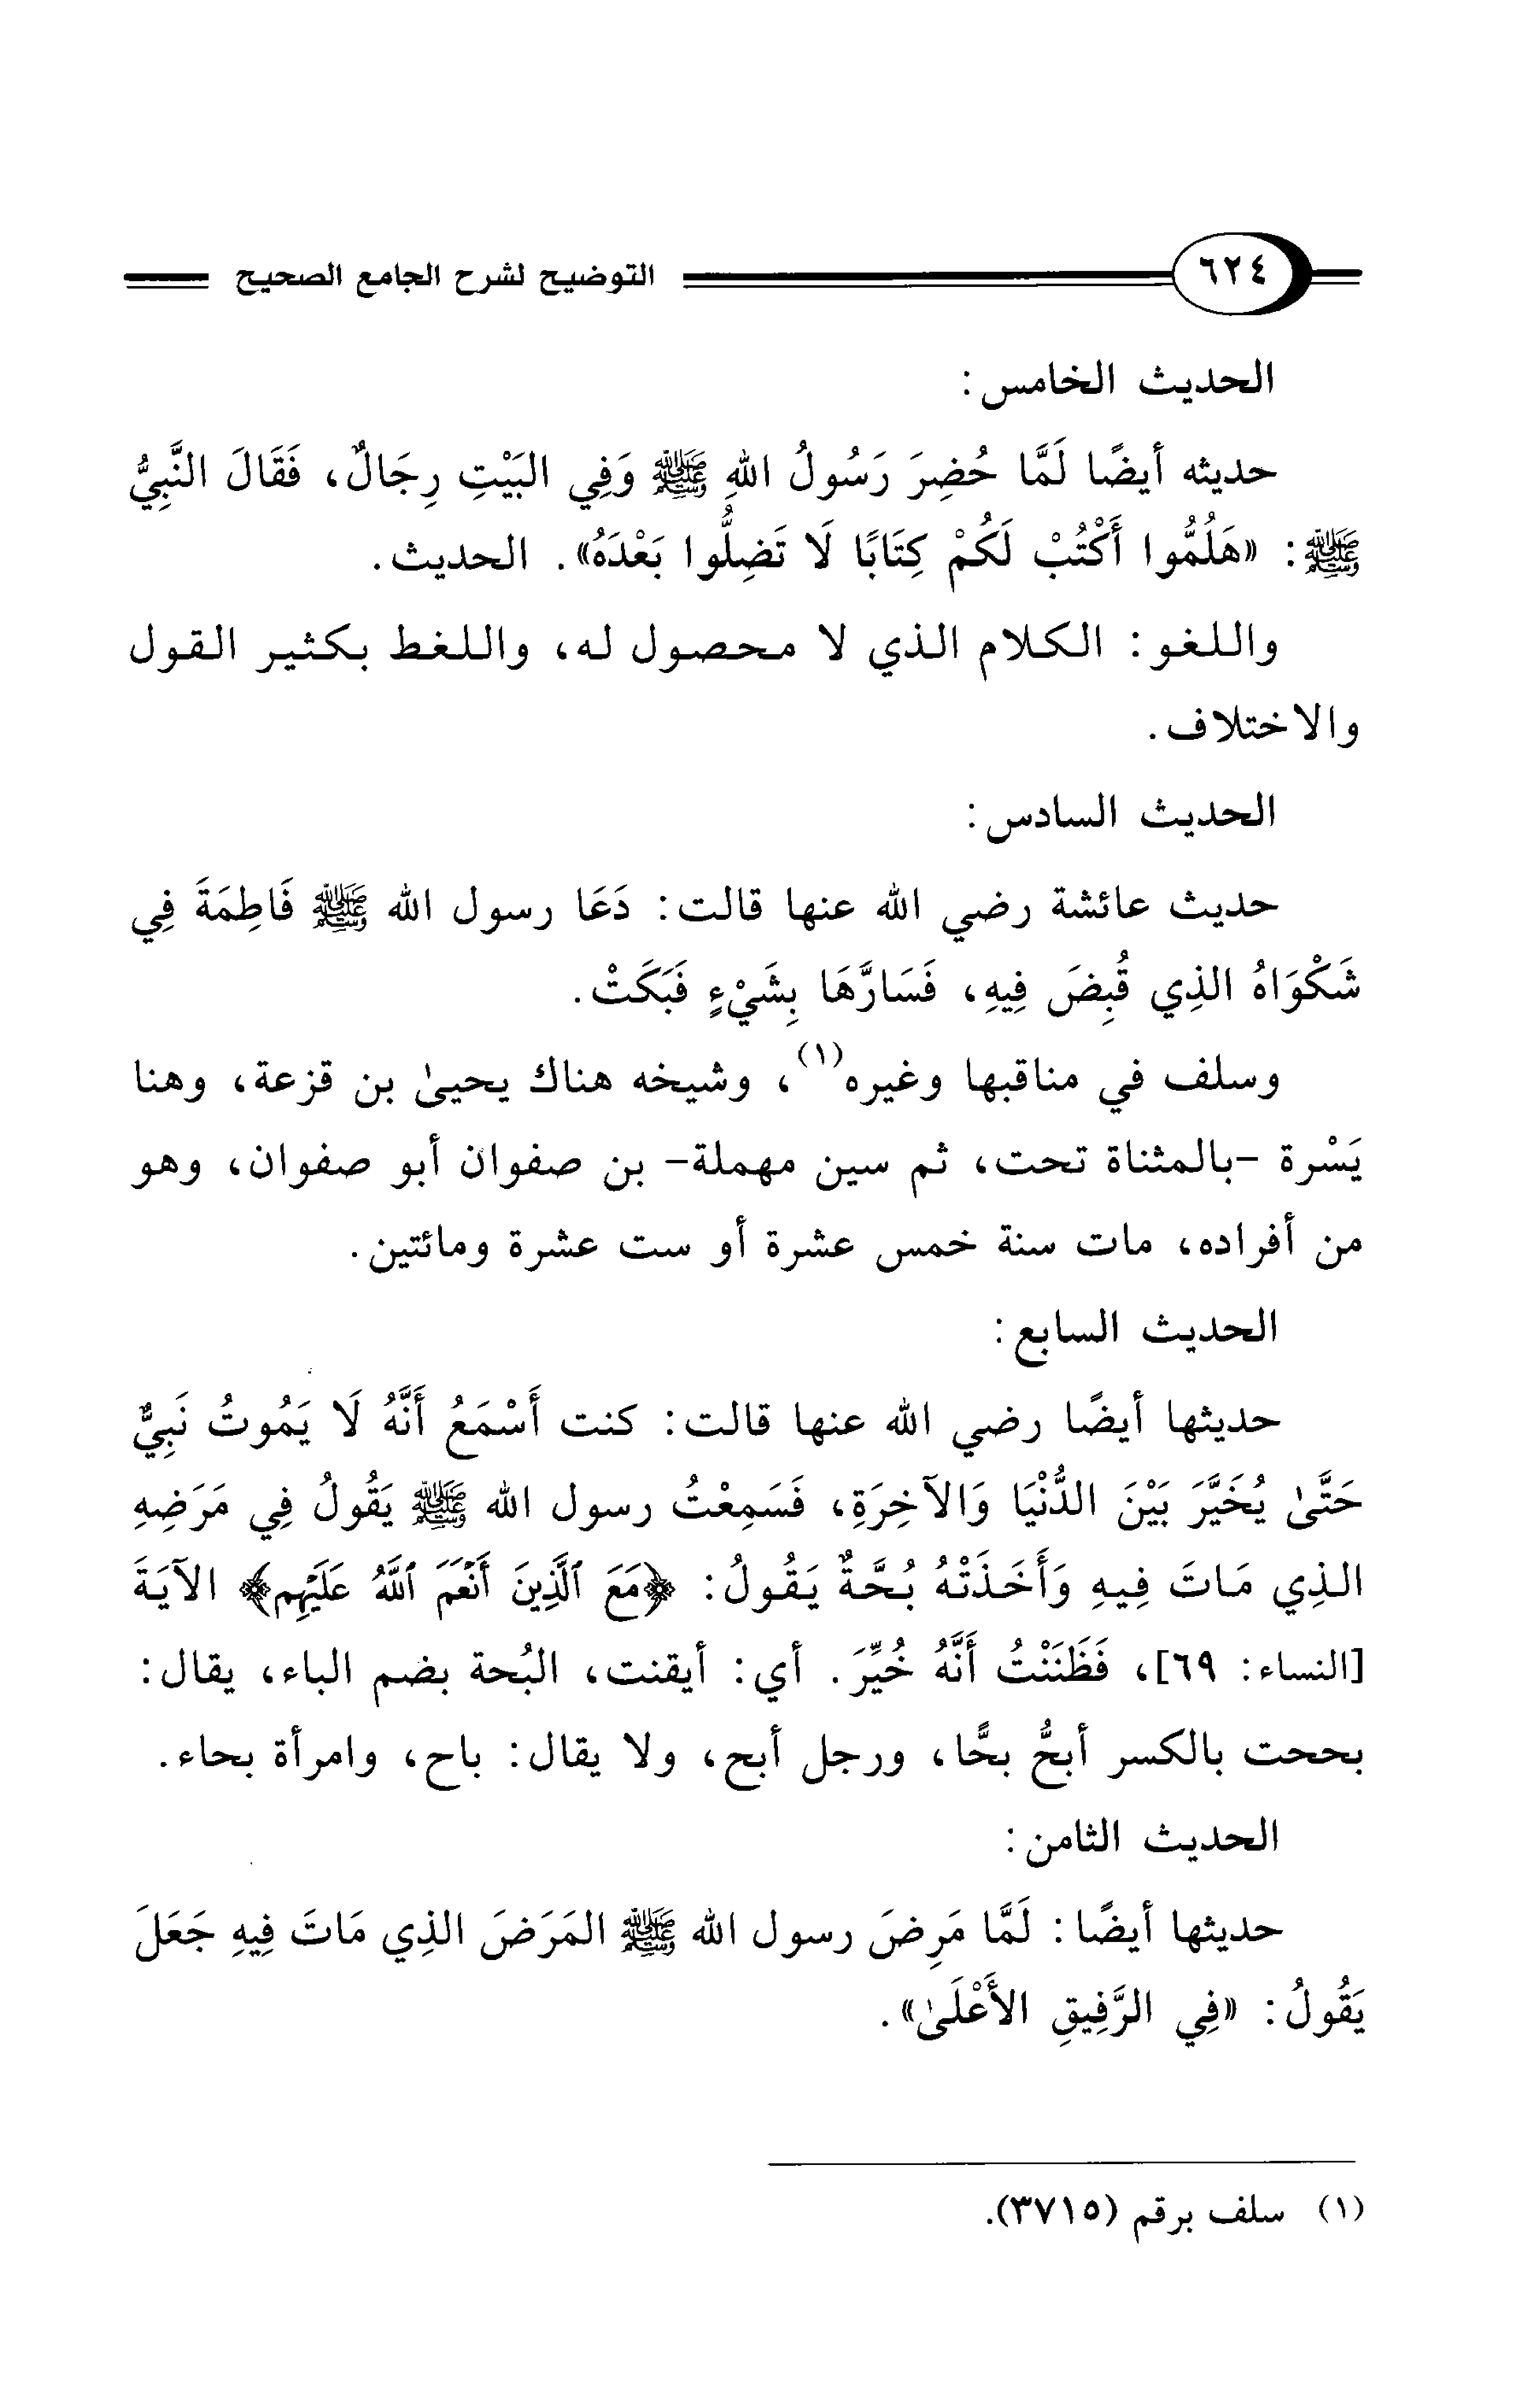 ٦٢٤ التوضيح لشرح الجامع الصحيح
الحديث الخامس:
حديثه أيضًا لَمَّا حُضِرَ رَسُولُ اللهِ ﷺ وَفِي البَيْتِ رِجَالٌ، فَقَالَ النَّبِيُّ
ﷺ: «هَلُمُّوا أَكْتُبْ لَكُمْ كِتَابًا لَا تَضِلُّوا بَعْدَهُ». الحديث.
واللغو: الكلام الذي لا محصول له، واللغط بكثير القول
والاختلاف.
الحديث السادس:
حديث عائشة رضي الله عنها قالت: دَعَا رسول الله ﷺ فَاطِمَةَ فِي
شَكْوَاهُ الذِي قُبِضَ فِيهِ، فَسَارَّهَا بِشَيْءٍ فَبَكَتْ.
وسلف في مناقبها وغيره(١)، وشيخه هناك يحيىٰ بن قزعة، وهنا
يَسْرة -بالمثناة تحت، ثم سين مهملة- بن صفوان أبو صفوان، وهو
من أفراده، مات سنة خمس عشرة أو ست عشرة ومائتين.
الحديث السابع:
حديثها أيضًا رضي الله عنها قالت: كنت أَسْمَعُ أَنَّهُ لَا يَمُوتُ نَبِيٌّ
حَتَّىٰ يُخَيَّرَ بَيْنَ الدُّنْيَا وَالآخِرَةِ، فَسَمِعْتُ رسول الله ﷺ يَقُولُ فِي مَرَضِهِ
الذِي مَاتَ فِيهِ وَأَخَذَتْهُ بُحَّةٌ يَقُولُ: ﴿مَعَ ٱلَّذِينَ أَنْعَمَ ٱللَّهُ عَلَيْهِم﴾ الآيَةَ
[النساء: ٦٩]، فَظَنَنْتُ أَنَّهُ خُيِّرَ. أي: أيقنت، البُحة بضم الباء، يقال:
بححت بالكسر أبحُّ بحًّا، ورجل أبح، ولا يقال: باح، وامرأة بحاء.
الحديث الثامن:
حديثها أيضًا: لَمَّا مَرِضَ رسول الله ﷺ المَرَضَ الذِي مَاتَ فِيهِ جَعَلَ
يَقُولُ: «فِي الرَّفِيقِ الأَعْلَىٰ».
(١) سلف برقم (٣٧١٥).